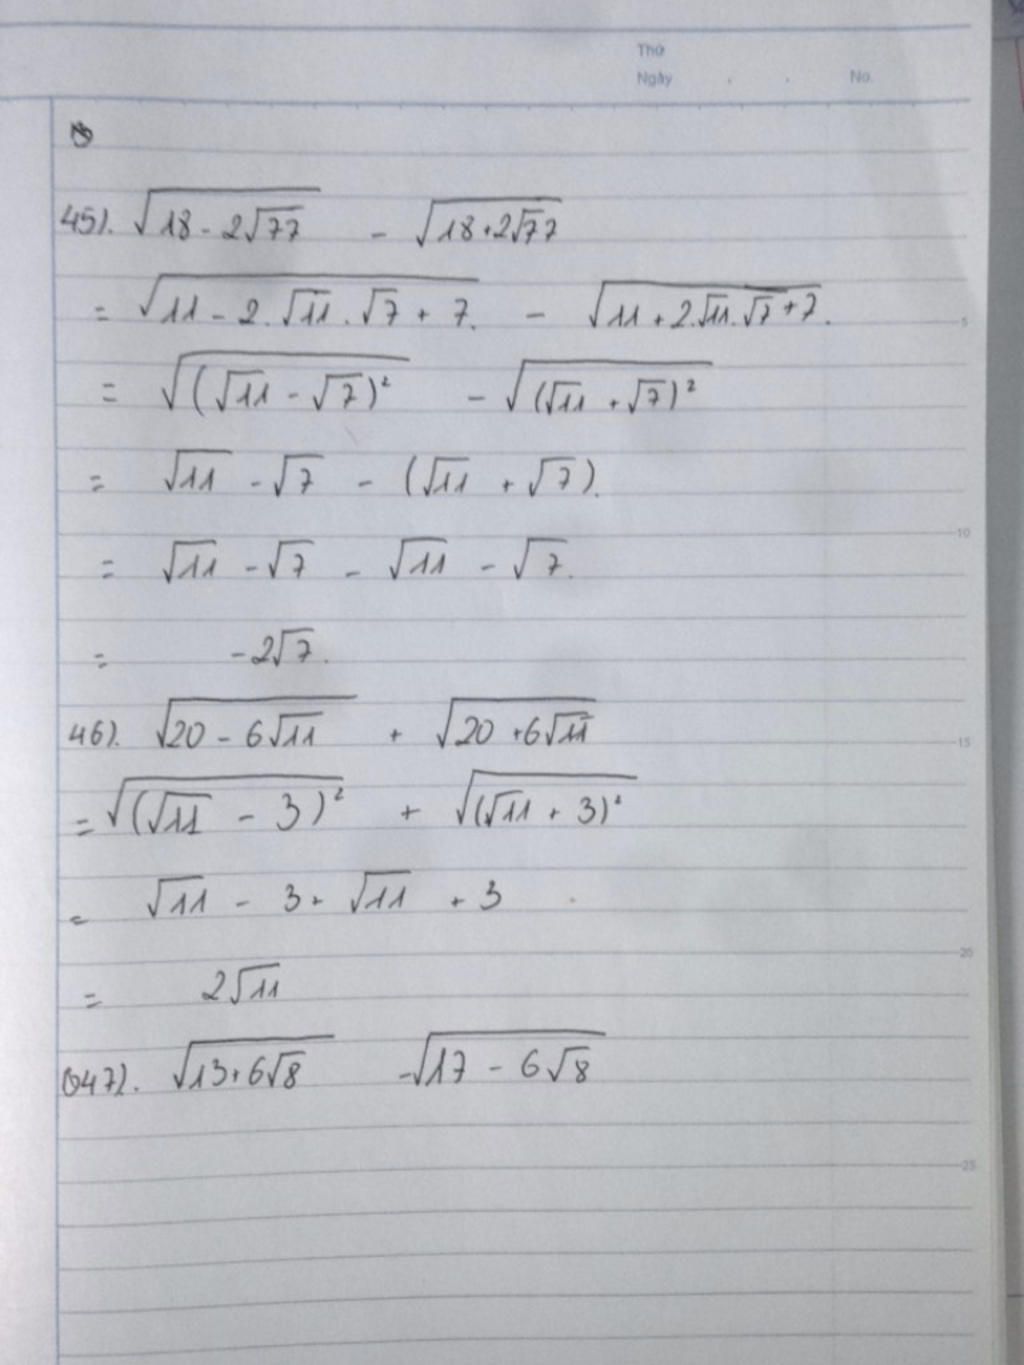 Thứ
Ngày . . No.
45). √(18 - 2√77) - √(18+2√77)
= √(11 - 2.√11.√7 + 7.) - √(11 + 2.√11.√7 + 7.)
= √((√11 - √7)²) - √((√11 + √7)²)
= √11 - √7 - (√11 + √7).
= √11 - √7 - √11 - √7.
= -2√7.
5
10
46). √(20 - 6√11) + √(20 + 6√11)
15
= √((√11 - 3)²) + √((√11 + 3)²)
= √11 - 3 + √11 + 3
= 2√11
20
47). √(13+6√8) -√(17 - 6√8)
25